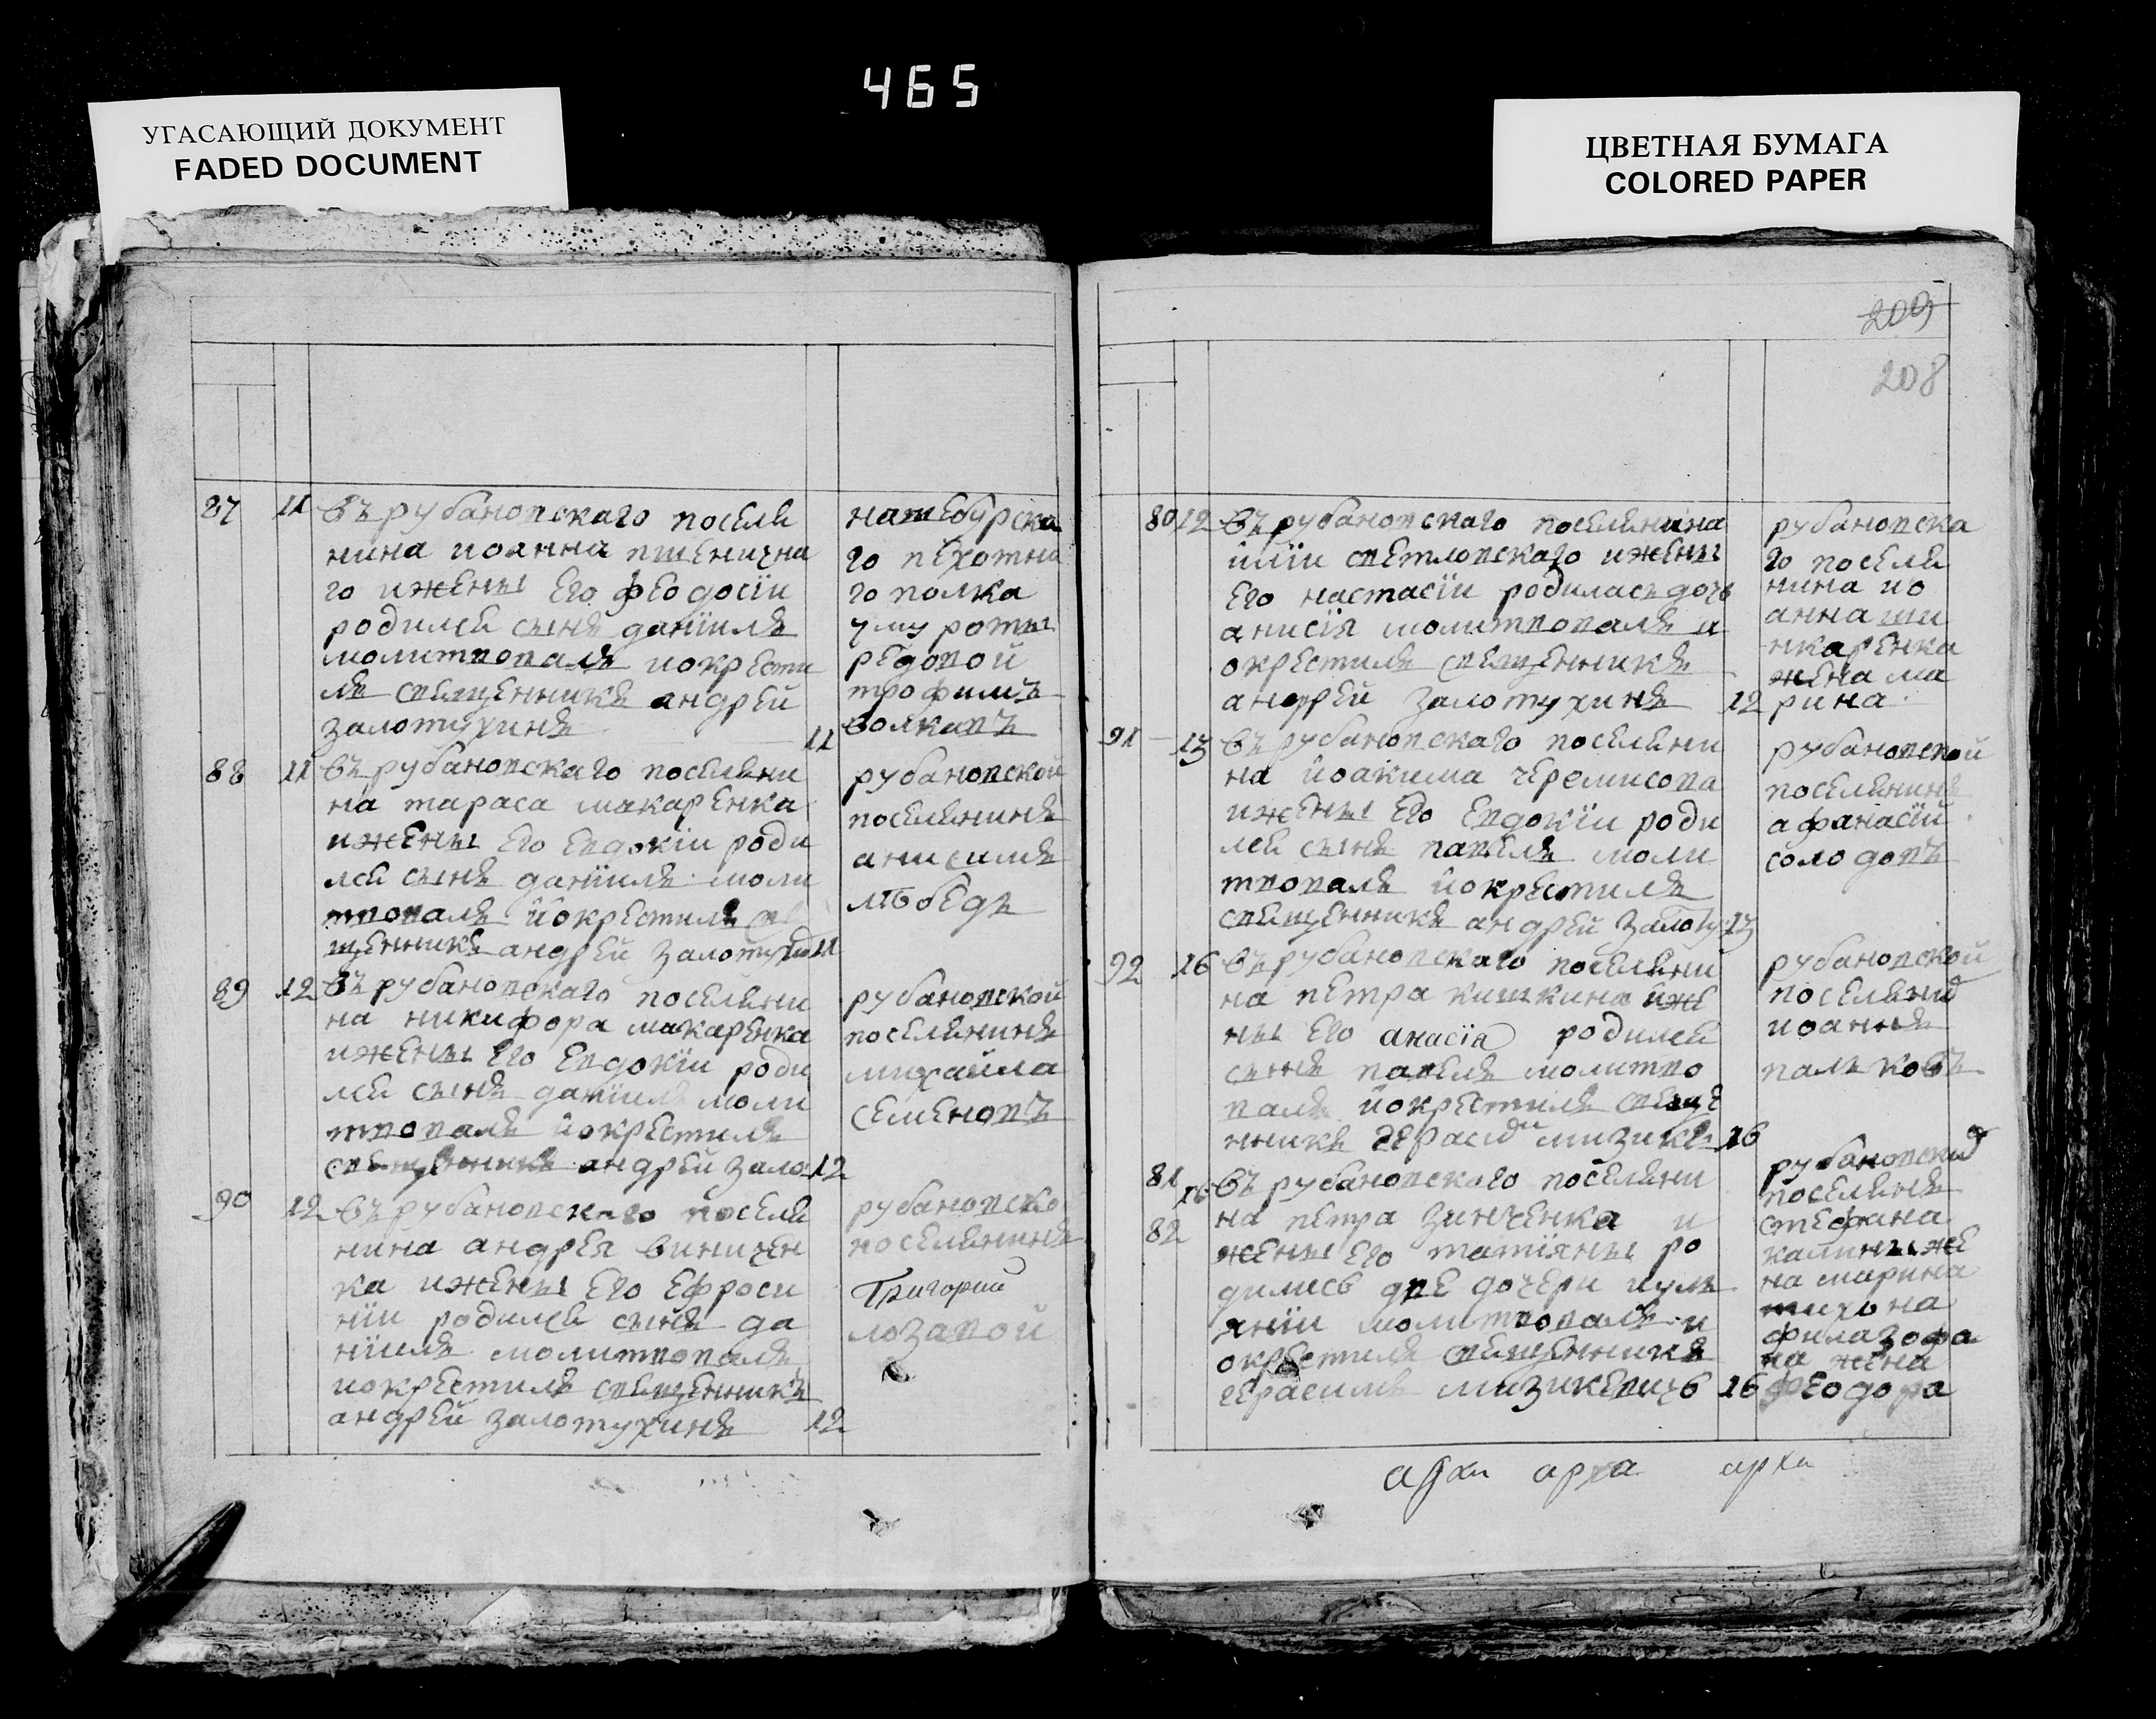 465
УГАСАЮЩИЙ ДОКУМЕНТ
FADED DOCUMENT
ЦВЕТНАЯ БУМАГА
COLORED PAPER
87 11 въ рубановскаго посели
нина иоанна пшенична
го ижены его феодосїи
родилси сынъ данїилъ
молитвовалъ иокрести
лъ свещенникъ андрей
залотухинъ 11
нашебурска
го пехотна
го полка
роты
редовой
трофимъ
волкавъ
88 11 въ рубановскаго поселяни
на тараса макаренка
ижены его евдокїи роди
лси сынъ данїилъ моли
твовалъ йокрестилъ све
щенникъ андрей залотухи 11
рубановской
поселянинъ
анисимъ
лѣбедъ
89 12 въ рубановскаго поселяни
на никифора макаренка
ижены его евдокїи роди
лси сынъ данїилъ моли
твовалъ йокрестилъ
свещенникъ андрей зало 12
рубановской
поселянинъ
михайла
семеновъ
90 12 въ рубановскаго посели
нина андрея виничен
ка ижены его ефроси
нїи родилси сынъ да
нїилъ молитвовалъ
иокрестилъ свещенникъ
андрей залотухинъ 12
рубановско
поселянинъ
Григории
лозавой
209
208
80 12 въ рубановскаго поселянина
илїи светловскаго ижены
его настасїи родиласъ дочъ
анисїя молитвовалъ и
окрестилъ свещенникъ
андрей залотухинъ 12
рубановска
го посели
нина ио
анна ши
нкаренка
жена ма
рина
91 13 въ рубановскаго поселяни
на йоакима черемисова
ижены его евдокїи роди
лси сынъ павелъ моли
твовалъ йокрестилъ
свещенникъ андрей залоту 13
рубановской
поселянинъ
афанасїй
солодовъ
92 16 въ рубановскаго поселяни
на петра кишкина йже
ны его анасїа родилси
сынъ павелъ молитво
валъ йокрестилъ свеще
нникъ герасим мизике 16
рубановской
поселяни
иоаннъ
палъковъ
81 16 въ рубановскаго поселяни
82 на петра зинченка и
жены его татїяны ро
дилисъ две дочери иулѣ
янїи молитвовалъ и
окрестилъ свещенникъ
герасимъ мизикевичъ 16
рубановски
поселянъ
стефана
калины же
на марина
тихона
филазофа
на жена
феодора
архи арха архи